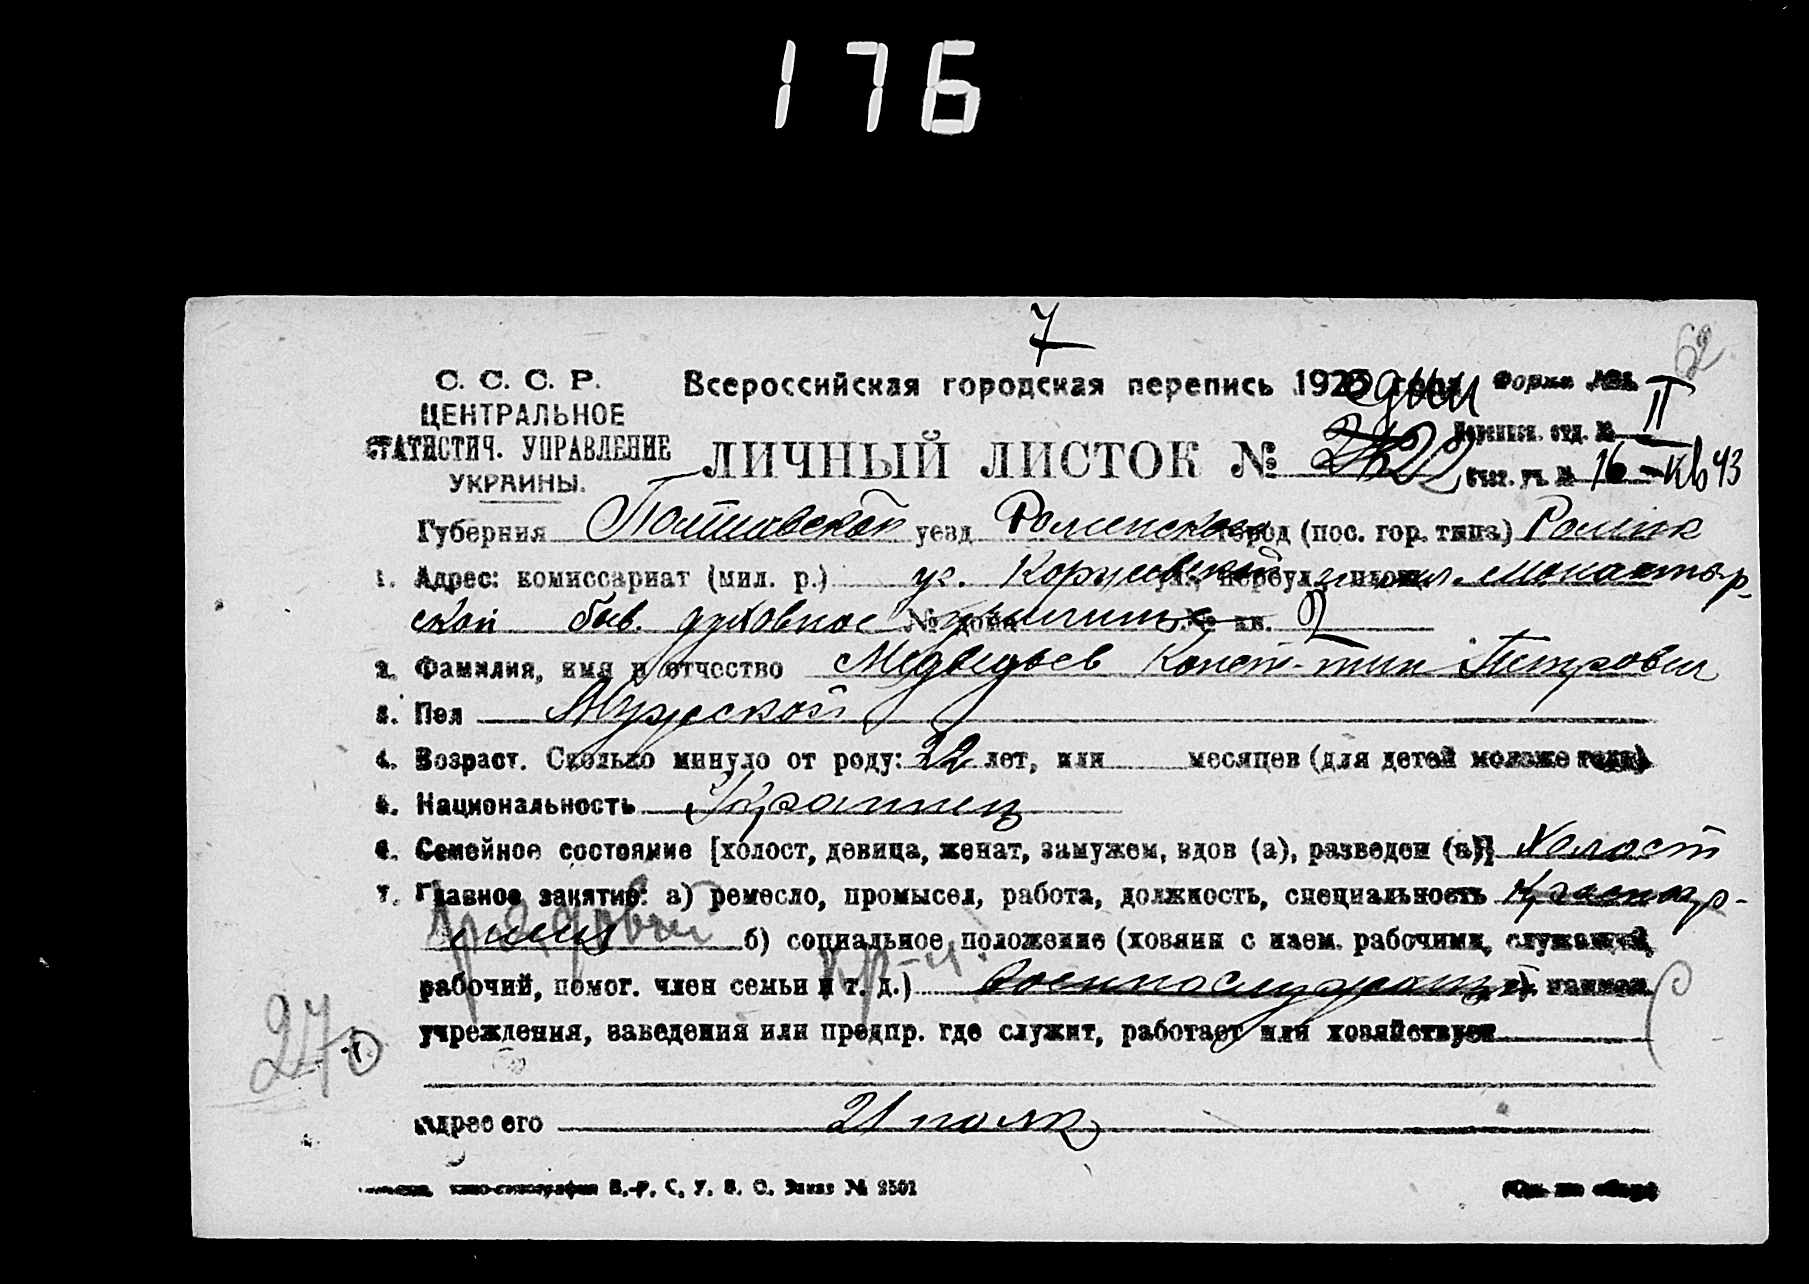 176
7
62
С. С. С. Р.
ЦЕНТРАЛЬНОЕ
СТАТИСТИЧ. УПРАВЛЕНИЕ
УКРАИНЫ.
Всероссийская городская перепись 1923 года Форма
ЛИЧНЫЙ ЛИСТОК № 22
отд. № II
Счет. уч. № 16 - кв 43
Губерния Полтавская уезд Роменского город (пос. гор. типа) Ромнах
1. Адрес: комиссариат (мил. р.) ул. переул. площ. монастыр-
ской быв. духовное училище № дома № кв. 2
2. Фамилия, имя и отчество Медведьев Конст-тин Петрович
3. Пол Мужской
4. Возраст. Сколько минуло от роду: 22 лет, или месяцев (для детей моложе года)
5. Национальность Украинец
6. Семейное состояние [холост, девица, женат, замужем, вдов (а), разведен (а)] Холост
7. Главное занятие: а) ремесло, промысел, работа, должность, специальность Красноар-
меец рядовый б) социальное положение (хозяин с наем. рабочими, служащий,
рабочий, помог. член семьи и т. д.) военнослужащий в) наимен.
учреждения, заведения или предпр. где служит, работает или хозяйствует
270
адрес его 21 полк
В.-Р. С. У. В. О. Заказ № 2501